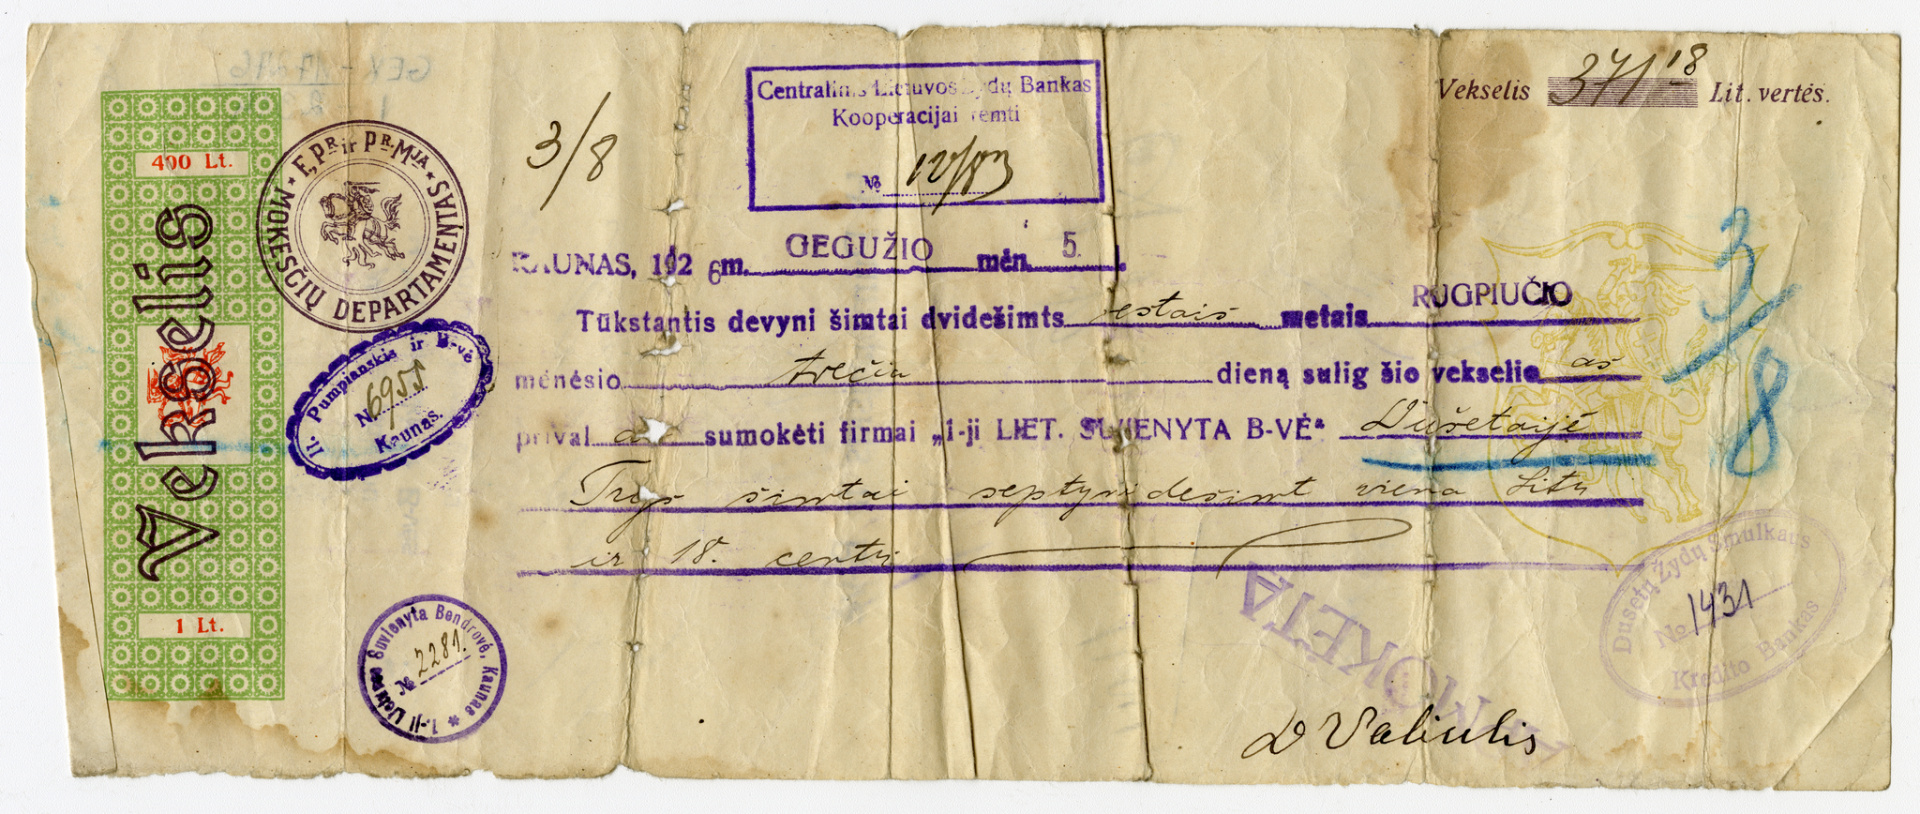 Vekselis 371 18 Lit. vertės.
Centralinis Lietuvos Žydų Bankas
Kooperacijai remti
№ 12/83
3/8
400 Lt.
Vekselis
1 Lt.
F., Pr. ir Pr. M-ja
MOKESČIŲ DEPARTAMENTAS
KAUNAS, 1926 m. GEGUŽIO mėn. 5 d.
Tūkstantis devyni šimtai dvidešimts šestais metais RUGPIUČIO
mėnėsio trečią dieną sulig šio vekselio aš
prival au sumokėti firmai „1-ji LIET. SUVIENYTA B-VĖ“ Dušetaijė
Trys šimtai septynidešimt viena Litų
ir 18. centų
3/8
Il. Pumpianskis ir B-vė
N 6955
Kaunas.
1-ji Lietuvos Suvienyta Bendrovė, Kaunas
№ 2281.
APMOKĖTA
Dusetų Žydų Smulkaus
No 1431
Kredito Bankas
D Valiulis